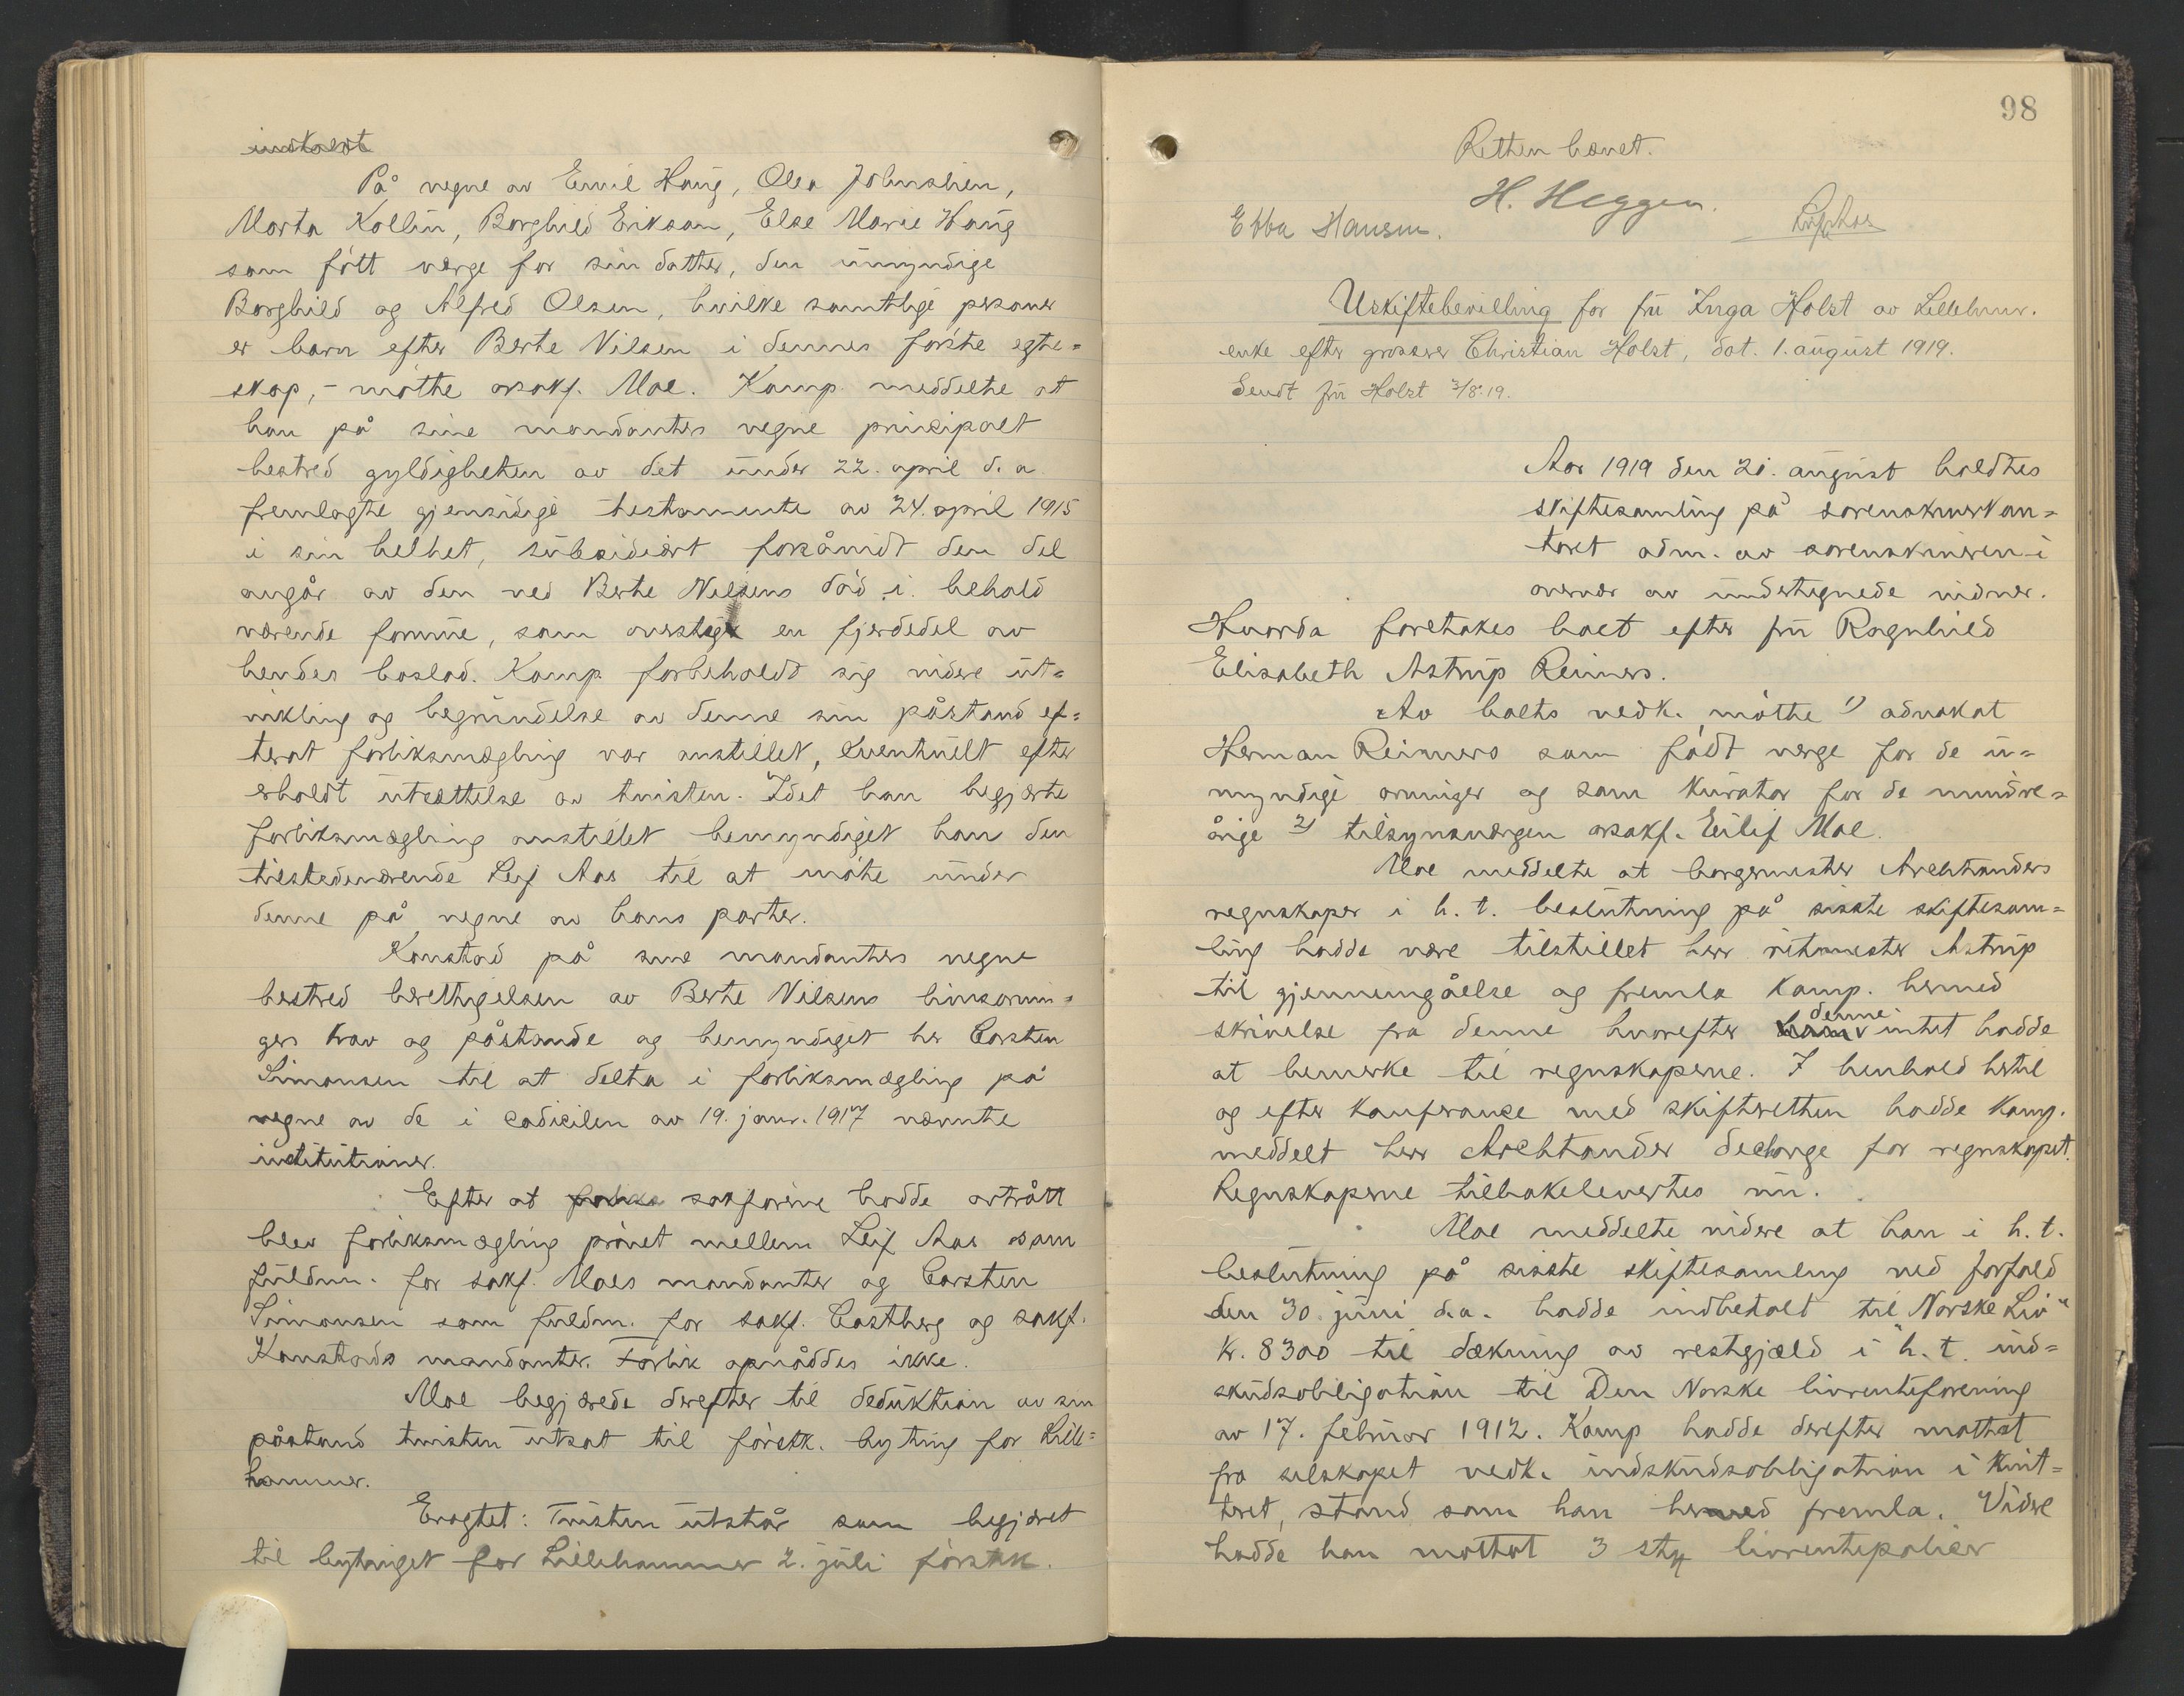 indkaldt
På vegne av Emil Haug, Olea Johnshien,
Marta Kollin, Borghild Erikson, Else Marie Haug
som fött verge for sin datter, den umyndige
Borghild og Alfred Olsen, hvilke samtlige personer
er barn efter Berte Nilsen i dennes første egte=
skap, - møtte orsakf. Moe. Komp. meddelte at
han på sine mandanters vegne principalt
bestred gyldigheten av det under 22. april d. a.
fremlagte gjensidige testamente av 24. april 1915
i sin helhet, subsidiært forsåvidt den del
angår av den ved Berte Nilsens död i behold
værende formue, som overstiger en fjerdedel av
hendes boslod. Komp. forbeholdt sig videre ut=
vikling og begrundelse av denne sin påstand ef=
terat forliksmægling var anstillet, eventuelt efter
erholdt utsættelse av tvisten. Idet han begjærte
forliksmægling anstillet bemyndiget han den
tilstedeværende Leif Aas til at møte under
denne på vegne av hans parter.
Konstad på sine mandanters vegne
bestred berettigelsen av Berte Nilsens livsarvin=
gers krav og påstande og bemyndiget hr Carsten
Simonsen til at delta i forliksmægling på
vegne av de i codicilen av 19. janr. 1917 nævnte
institutioner.
Efter at sakførerne hadde avtrått
blev forliksmægling prövet mellem Leif Aas som
fuldm. for sakf. Moes mandanter og Carsten
Simonsen som fuldm. for sakf. Castberg og sakf.
Konstads mandanter. Forlik opnåddes ikke.
Moe begjærede derefter til deduktion av sin
påstand tvisten utsat til förstk. byting for Lille=
hammer.
Eragtet: Tvisten utstår som begjæret
til bytinget for Lillehammer 2. juli førstk.
98
Retten hævet.
H. Heggen.
Ebba Hansen.
Leif Aas
Uskiftebevilling for fru Inga Holst av Lillehmr.
enke efter grosserer Christian Holst, dat. 1. august 1919.
Sendt fru Holst 3/8.19.
Aar 1919 den 20. august holdtes
skiftesamling på sorenskriverkon=
toret adm. av sorenskriveren i
overvær av undertegnede vidner.
Hvorda foretokes boet efter fru Ragnhild
Elisabeth Astrup Reimers.
Av boets vedk. møtte 1) advokat
Herman Reimers som födt verge for de u=
myndige arvinger og som kurator for de mindre=
årige 2) tilsynsvergen orsakf. Eilif Moe.
Moe meddelte at borgermester Arctanders
regnskaper i h. t. beslutning på sisste skiftesam=
ling hadde være tilstillet herr ritmester Astrup
til gjennemgåelse og fremla Komp. hermed
skrivelse fra denne hvorefter denne intet hadde
at bemerke til regnskaperne. I henhold hertil
og efter konferanse med skifteretten hadde Komp.
meddelt herr Archtander decharge for regnskapet.
Regnskaperne tilbakelevertes nu.
Moe meddelte videre at han i h. t.
beslutning på sisste skiftesamling ved forfald
den 30. juni d.a. hadde indbetalt til "Norske Liv"
kr. 8300 til dækning av restgjæld i h. t. ind=
skudsobligation til Den Norske livrenteforening
av 17. februar 1912. Komp hadde derefter mottat
fra selskapet vedk. indskudsobligation i kvit=
teret stand som han hermed fremla. Videre
hadde han mottat 3 stk livrentepoliser